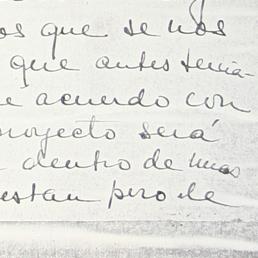 os que se nos
que antes tenia-
e acuerdo con
royecto será
dentro de unos
estan pero de